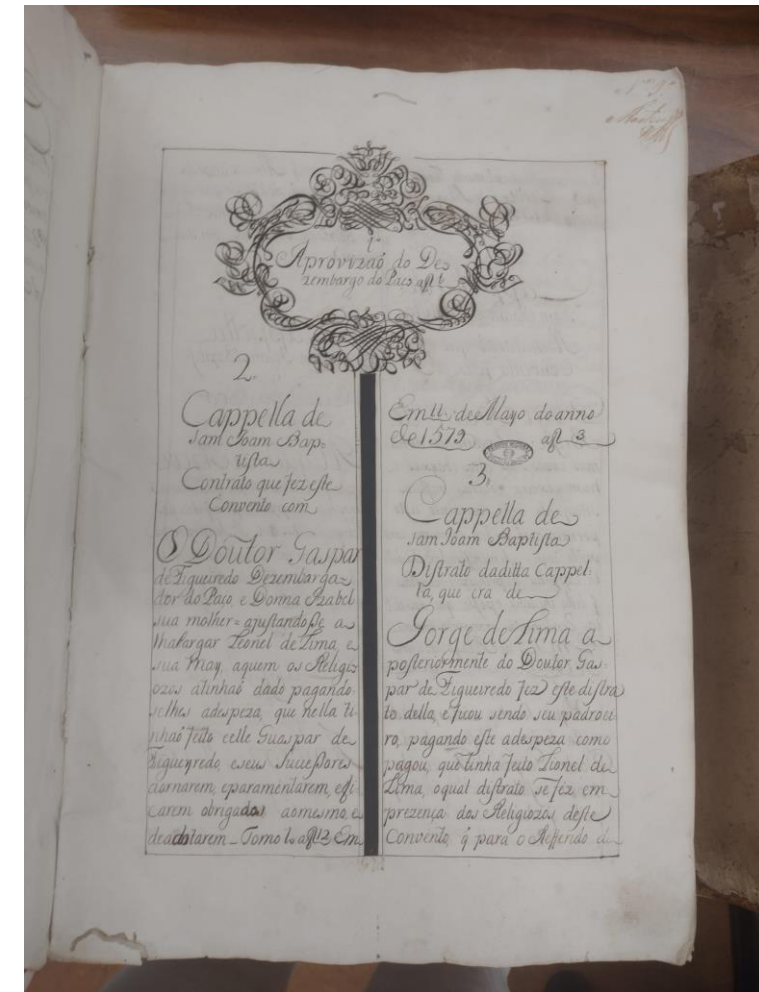 1.º
Aprovizaõ do De
zembargo do Paço afl 1
2.
Cappella de
sam Joam Bap=
tista
Contrato que fez este
Convento com
O Doutor Gaspar
de Figueiredo Dezembarga=
dor do Paço, e Donna Izabel
sua molher= ajustandosse a
lhalargar Leonel de Lima, e
sua May, aquem os Religi
ozos atinhaõ dado pagando
selhes adespeza, que nella ti
nhaõ feito eelle Guaspar de
Figueyredo, eseus sucessores
aornarem, eparamentarem, efi
carem obrigados aomesmo, e
deadotarem _ Tomo 1.º afl 12 Em
Em 11 de Mayo do anno
de 1579 afl 3
3.
Cappella de
sam Joam Baptista
Distrato daditta Cappel=
la, que era de
Jorge de Lima a
posteriormente do Doutor Gas
par de Figueiredo fez este distra
to dello, e ficou sendo seu padroei
ro, pagando este adespeza como
pagou, que tinha feito Lionel de
Lima, oqual distrato se fez em
prezença dos Religiozos deste
Convento, q̃ para o Refferido a